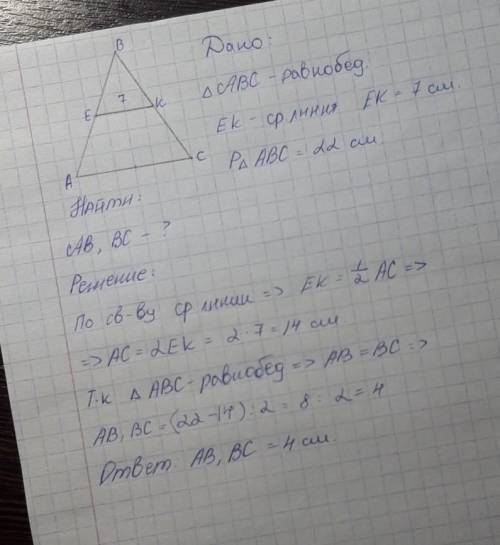 B
Дано:
△ABC - равнобед.
7
E
K
EK - ср линия EK = 7 см.
P△ ABC = 22 см
A
C
Найти:
AB, BC - ?
Решение:
По св-ву ср линии => EK = 1/2 AC =>
=> AC = 2EK = 2·7 = 14 см
Т.к △ ABC - равнобед => AB = BC =>
AB, BC = (22-14) : 2 = 8 : 2 = 4
Ответ: AB, BC = 4 см.